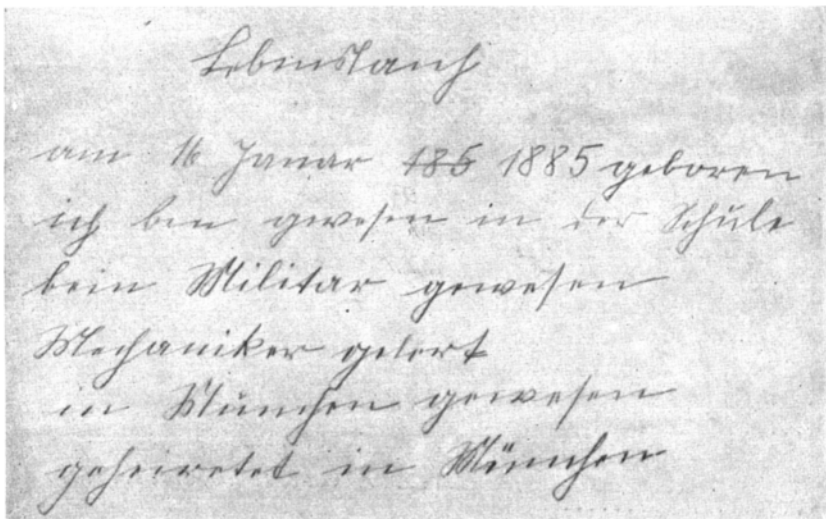 Lebenslauf
am 16 Janar 186 1885 geboren
ich ben gewesen in der Schüle
bein Militar gewesen
Mechaniker gelert
in Munchen gewesen
geheiretet in Münchon